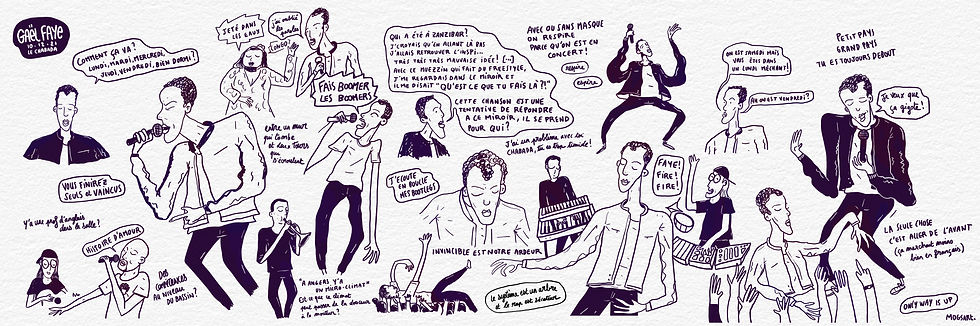 GAËL FAYE
10.12.21
LE CHABADA
COMMENT ÇA VA?
LUNDI, MARDI, MERCREDI,
JEUDI, VENDREDI, BIEN DORMI?
JETÉ DANS
LES EAUX
j'ai oublié
les paroles
LONDO
FAIS BOOMER
LES BOOMERS
QUI A ÉTÉ À ZANZIBAR?
J'CROYAIS QU'EN ALLANT LÀ BAS
J'ALLAIS RETROUVER L'INSPI...
TRÈS TRÈS TRÈS MAUVAISE IDÉE! (...)
AVEC LE MUEZZIN QUI FAIT DU FREESTYLE,
J'ME REGARDAIS DANS LE MIROIR ET
IL ME DISAIT "QU'EST CE QUE TU FAIS LÀ ?!"
CETTE CHANSON EST UNE
TENTATIVE DE RÉPONDRE
À CE MIROIR, IL SE PREND
POUR QUI?
AVEC OU SANS MASQUE
ON RESPIRE
PARCE QU'ON EST EN
CONCERT!
respire
espère
J'ai un problème avec toi
CHABADA, tu es trop timide!
ON EST SAMEDI MAIS
VAIS ÊTES DANS
UN LUNDI MÉCHANT!
Ah on est VENDREDI?
PETIT PAYS
GRAND PAYS
TU ES TOUJOURS DEBOUT
Je veux que
ça gigote!
entre un mur
qui tombe
et deux tours
qui s'écroulent
VOUS FINIREZ
SEULS et VAINCUS
Y'a une prof d'anglais
dans la salle?
HISTOIRE D'AMOUR
DES
COMPÉTENCES
AU NIVEAU
DU BASSIN?
"À ANGERS Y'A
UN MICRO-CLIMAT"
Est ce que le climat
peut rendre la douceur
à la moiteur?
J'ÉCOUTE
EN BOUCLE
MES BOOTLEGS
INVINCIBLE EST NOTRE ARDEUR
FAYE!
FIRE!
FIRE!
Le système est un arbre
et le rap est sécateur
LA SEULE CHOSE
C'EST ALLER DE L'AVANT
(ça marchait moins
bien en français)
ONLY WAY IS UP
MOGSART.